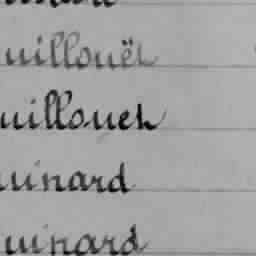 uillouët
uillouët
uinard
uinard